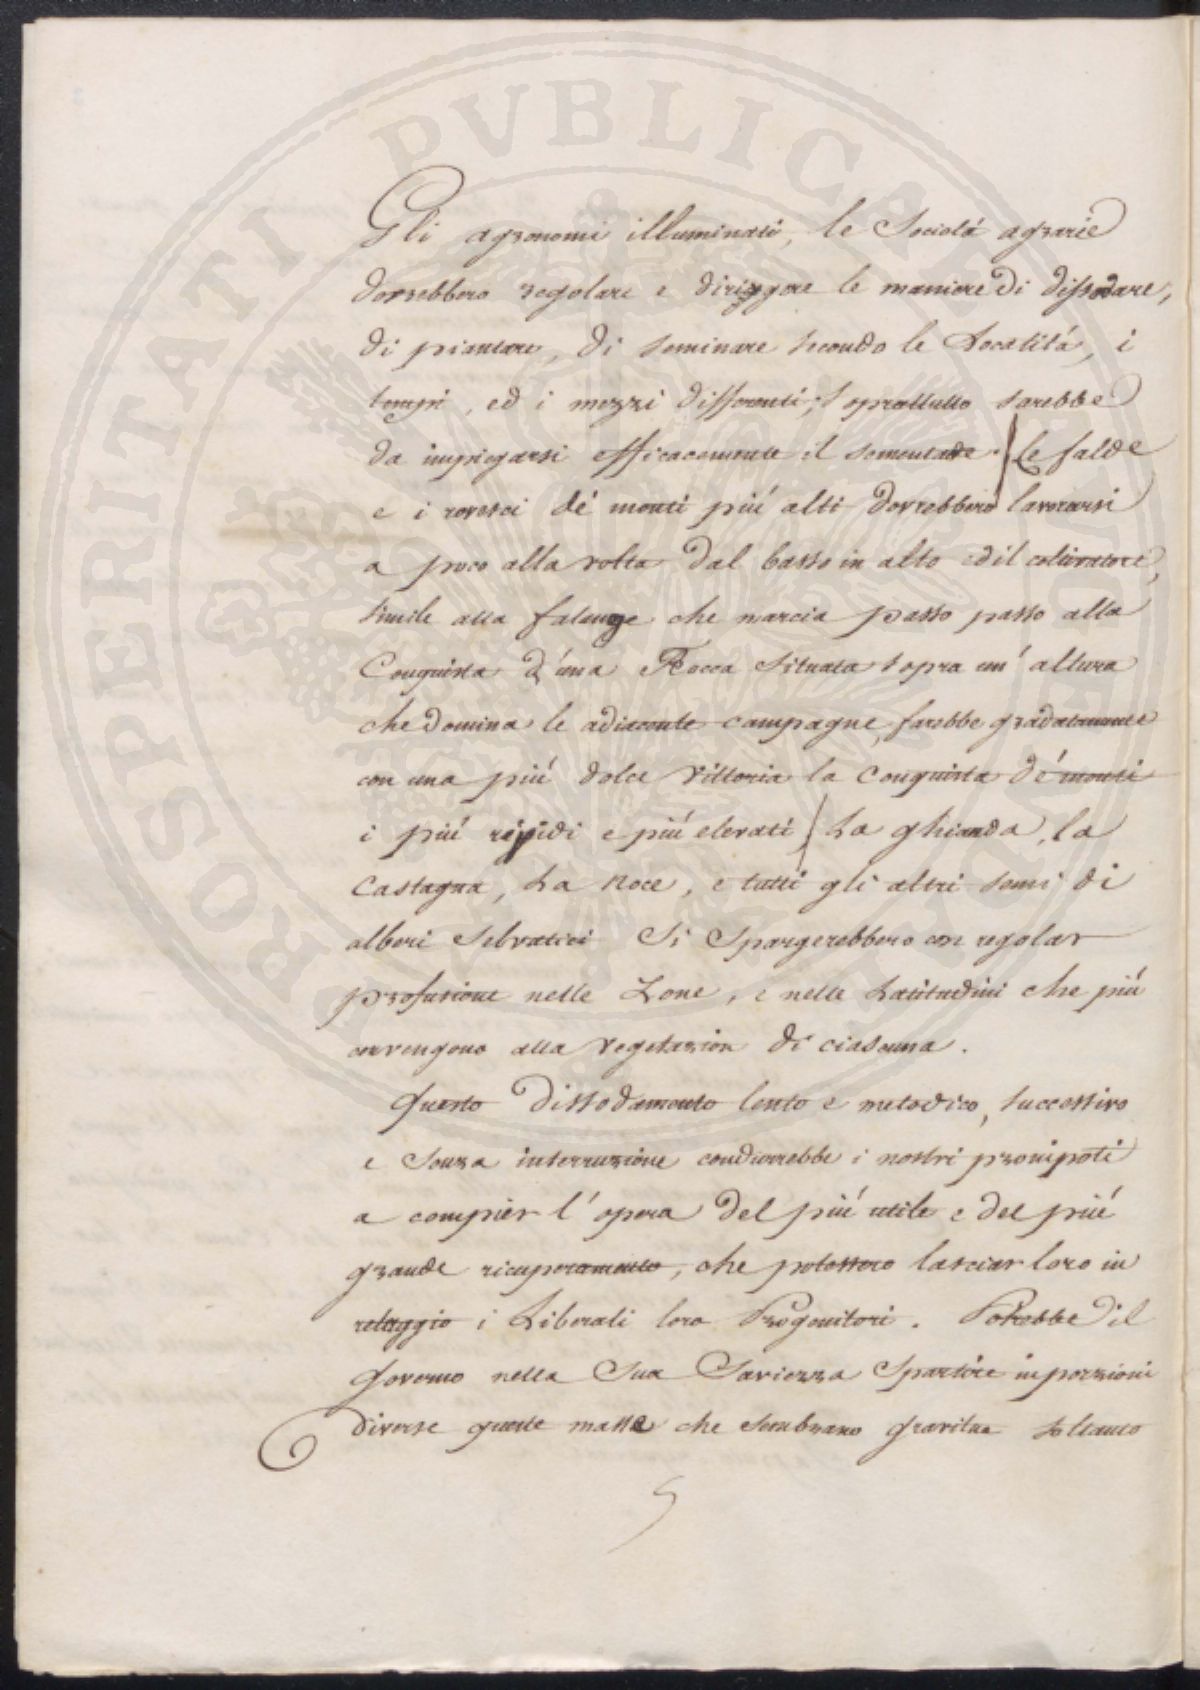 PROSPERITATI PVBLICAE
Gli agronomi illuminati, le Societá agrarie
dovrebbero regolare e diriggere le maniere di dissodare,
di piantare, di seminare secondo le Localitá, i
tempi, ed i mezzi differenti; sopratutto sarebbe
da impiegarsi efficacemente il sementare. Le falde
e i rovesci dé monti piú alti dovrebbero lavorarsi
a poco alla volta dal basso in alto ed il coltivatore,
simile alla falange che marcia passo passo alla
Conquista d'una Rocca situata sopra un' altura
che domina le adiacente campagne, farebbe gradatamente
con una piú dolce vittoria la Conquista dé monti
i piú ripidi e piú elevati La ghianda, la
Castagna, La Noce, e tutti gli altri semi di
alberi Selvatici Si Spargerebbero con regolar
profusione nelle Zone, e nelle Latitudini che piú
convengono alla vegetazion di ciascuna.
Questo dissodamento lento e metodico, successivo
e Senza interruzione condurrebbe i nostri pronipoti
a compier l' opera del piú utile e del piú
grande ricuperamento, che potessero lasciar loro in
retaggio i Liberali loro Progenitori. Potrebbe il
Governo nella Sua Saviezza Spartire in porzioni
diverse queste masse che sembrano gravitar soltanto